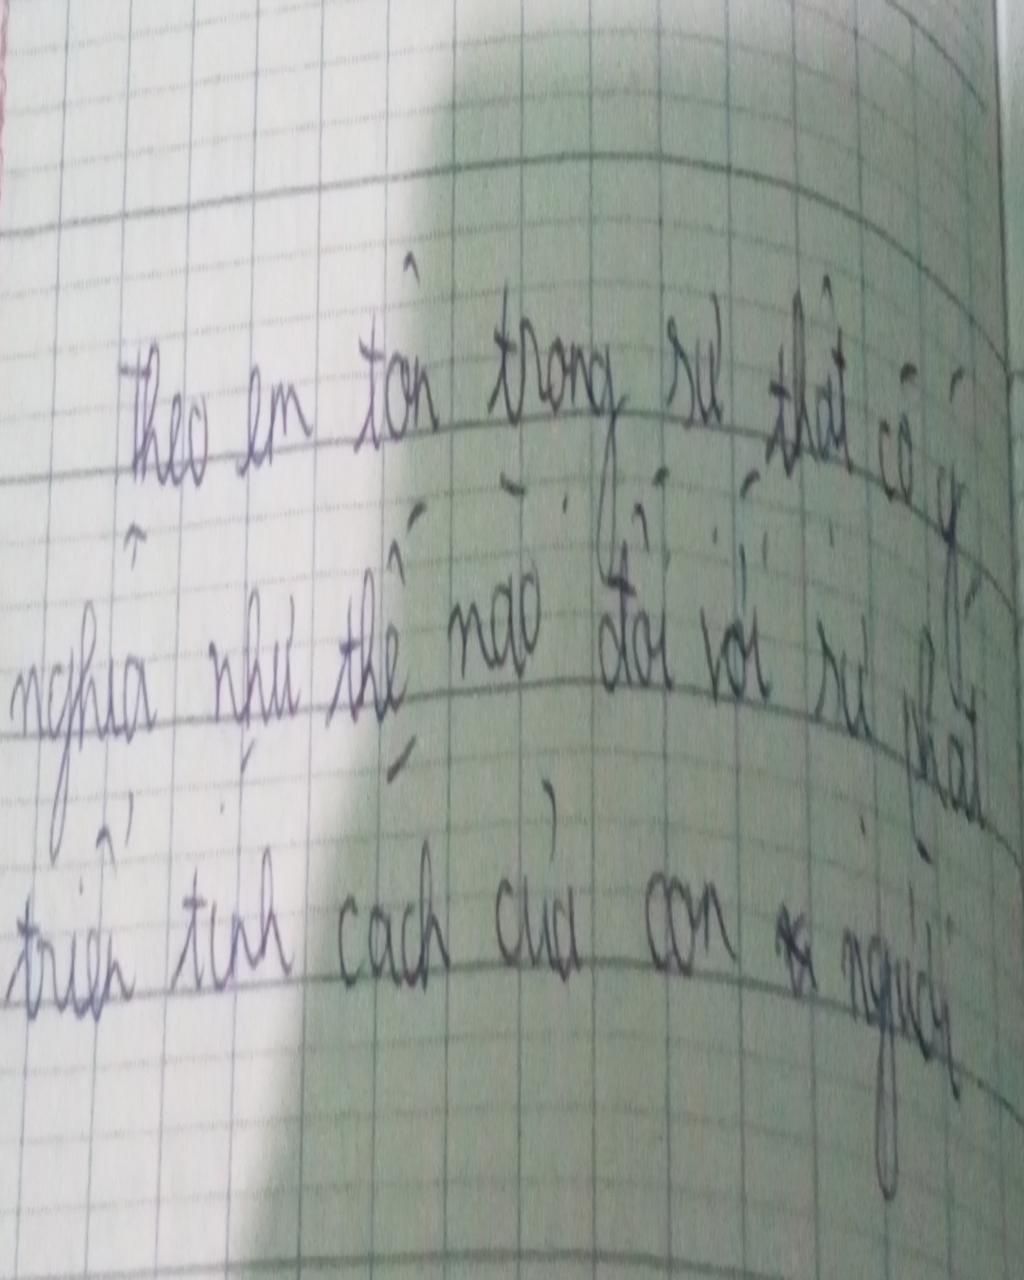 Theo em tôn trọng sự thật có ý
nghĩa như thế nào đối với sự phát
triển tính cách của con người